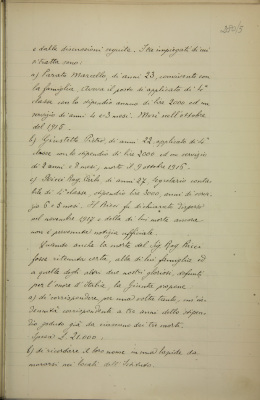 e dalle discussioni seguite. I tre impiegati di cui
si tratta sono:
a) Marcello, di anni 23, convivente con
la famiglia. Aveva il posto di applicato di 4ª
classe con lo stipendio annuo di lire 2000 ed un
servizio di anni 4 e 3 mesi. Morì nell'ottobre
del 1915.
b) Pietro, di anni 22, applicato di 4ª
classe con lo stipendio di lire 2000 ed un servizio
di 2 anni, e 8 mesi, morto il 9 ottobre 1915.
c) Ricci Rag. Carlo di anni 27, Segretario conta-
bile di 4ª classe, stipendio lire 3000, anni di servi-
zio 6 e 8 mesi. Il Ricci fu dichiarato disperso
nel novembre 1917 e della di lui morte ancora
non è pervenuta notizia ufficiale.
Quando anche la morte del Sig. Rag. Ricci
fosse ritenuta certa, alla di lui famiglia ed
a quelle degli altri due nostri gloriosi defunti
per l'onore d'Italia, la Giunta propone
a) di corrispondere per una volta tanto, un'in-
dennità corrispondente a tre anni dello stipen-
dio goduto già da ciascuno dei tre morti.
Spesa L. 21.000.
b) di ricordare il loro nome in una lapide da
murarsi nei locali dell'